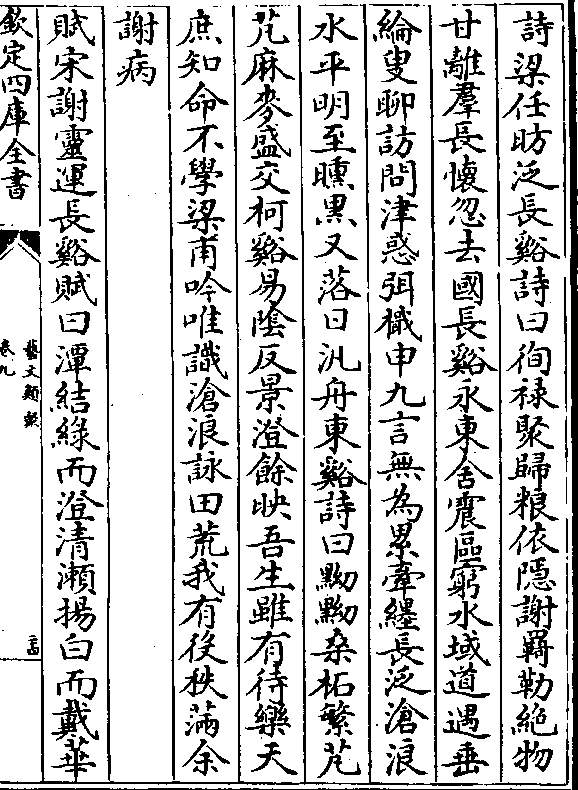 詩梁任昉泛長谿詩曰徇禄聚歸粮依隱謝羇勒絶物
甘離羣長懷忽去國長谿永東舍震區窮水域道遇垂
綸叟聊訪問津惑弭檝申九言無為累牽纆長泛滄浪
水平明至曛黒又落日汎舟東谿詩曰黝黝桑柘繁芃
芃麻麥盛交柯谿易隂反景澄餘映吾生雖有待樂天
庶知命不學梁甫吟唯識滄浪詠田荒我有役秩滿余
謝病
賦宋謝靈運長谿賦曰潭結緑而澄清瀬揚白而戴華
欽定四庫全書
藝文類聚
卷九
二四